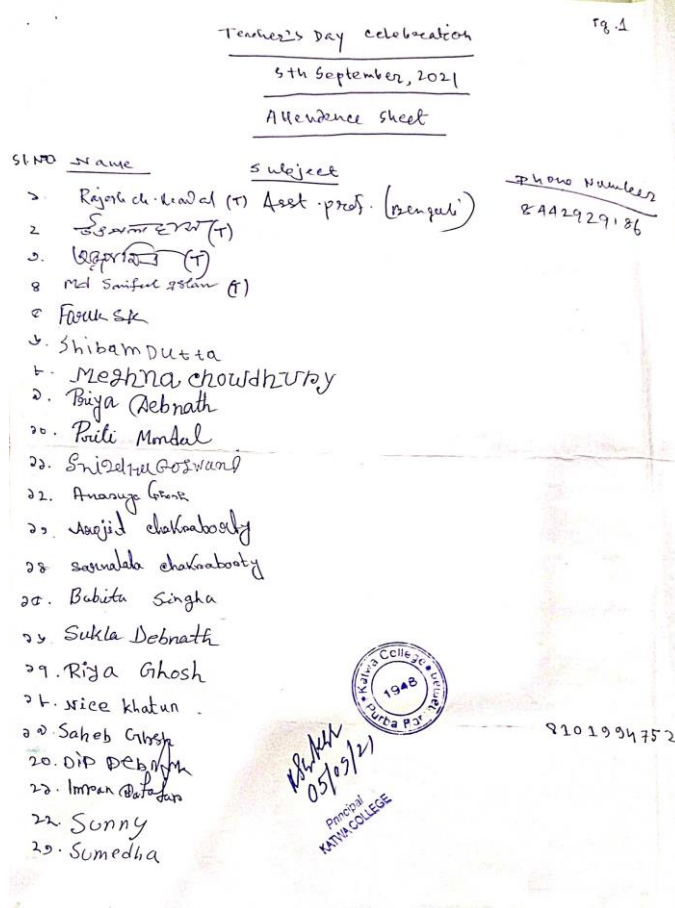 Pg.1
Teacher's Day celebration
5th September, 2021
Attendence sheet
SI.NO Name Subject Phone Number
১. Rajesh ch. (T) Asst. prof. (Bengali) 8442929186
২ (T)
৩. (T)
৪ Md Saiful Islam (T)
৫ Faruk SK
৬. Shibam Dutta
৮. Meghna Chowdhury
৯. Priya Debnath
১০. Priti Mondal
১১. Goswami
১২. Anasuya Ghosh
১৩. Avejit chakraborty
১৪ chakraborty
১৫. Babita Singha
১৬ Sukla Debnath
১৭. Riya Ghosh
১৮. Nice khatun.
১৯. Saheb Ghosh 8101994752
২০. DiP DEBNATH
২১. Imran
২২. Sunny
২৩. Sumedha
Katwa College
1948
Purba Bar
05/09/21
Principal
KATWA COLLEGE